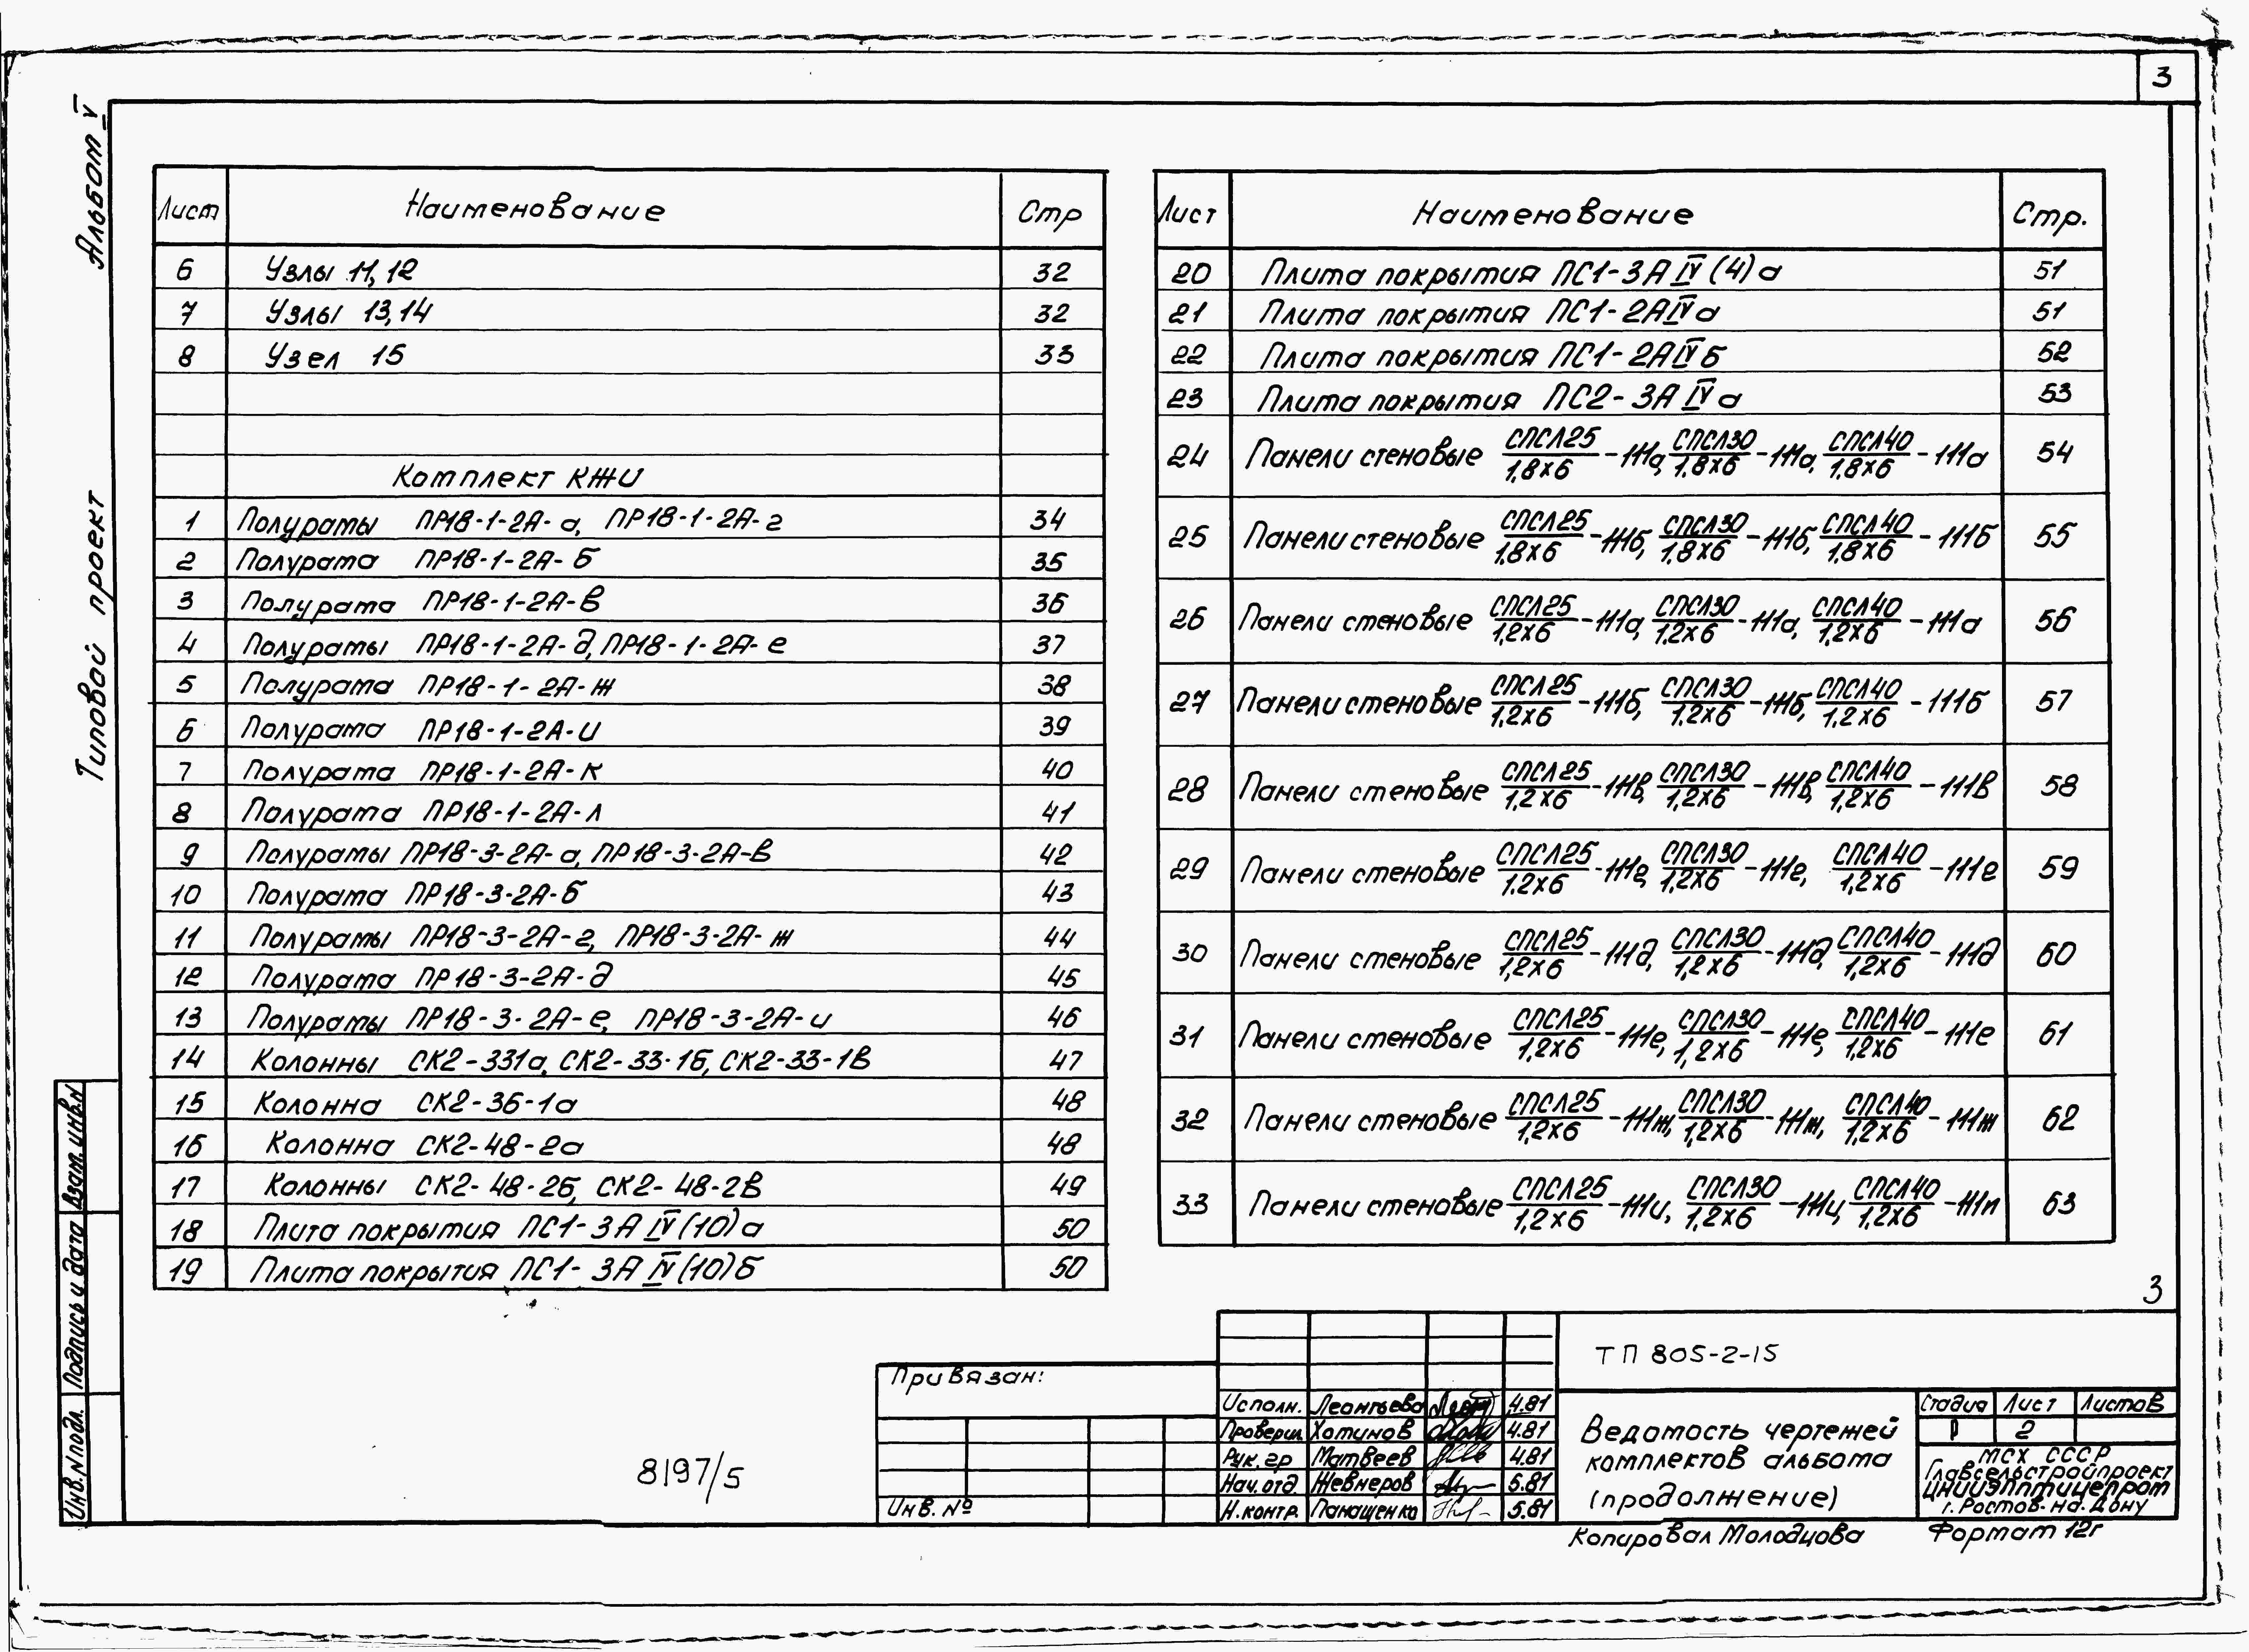 3
Альбом V
Типовой проект
Лист Наименование Стр
6 Узлы 11,12 32
7 Узлы 13,14 32
8 Узел 15 33
Комплект КЖИ
1 Полурамы ПР18-1-2А-а, ПР18-1-2А-г 34
2 Полурама ПР18-1-2А-б 35
3 Полурама ПР18-1-2А-в 36
4 Полурамы ПР18-1-2А-д, ПР18-1-2А-е 37
5 Полурама ПР18-1-2А-ж 38
6 Полурама ПР18-1-2А-и 39
7 Полурама ПР18-1-2А-к 40
8 Полурама ПР18-1-2А-л 41
9 Полурамы ПР18-3-2А-а, ПР18-3-2А-в 42
10 Полурама ПР18-3-2А-б 43
11 Полурамы ПР18-3-2А-г, ПР18-3-2А-ж 44
12 Полурама ПР18-3-2А-д 45
13 Полурамы ПР18-3-2А-е, ПР18-3-2А-и 46
14 Колонны СК2-331а, СК2-33-1б, СК2-33-1в 47
15 Колонна СК2-36-1а 48
16 Колонна СК2-48-2а 48
17 Колонны СК2-48-2б, СК2-48-2в 49
18 Плита покрытия ПС1-3А IV (10)а 50
19 Плита покрытия ПС1-3А IV (10)б 50
Лист Наименование Стр.
20 Плита покрытия ПС1-3А IV (4)а 51
21 Плита покрытия ПС1-2АIVа 51
22 Плита покрытия ПС1-2АIVб 52
23 Плита покрытия ПС2-3А IVа 53
24 Панели стеновые СПСЛ25/1,8х6-111а, СПСЛ30/1,8х6-111а, СПСЛ40/1,8х6-111а 54
25 Панели стеновые СПСЛ25/1,8х6-111б, СПСЛ30/1,8х6-111б, СПСЛ40/1,8х6-111б 55
26 Панели стеновые СПСЛ25/1,2х6-111а, СПСЛ30/1,2х6-111а, СПСЛ40/1,2х6-111а 56
27 Панели стеновые СПСЛ25/1,2х6-111б, СПСЛ30/1,2х6-111б, СПСЛ40/1,2х6-111б 57
28 Панели стеновые СПСЛ25/1,2х6-111в, СПСЛ30/1,2х6-111в, СПСЛ40/1,2х6-111в 58
29 Панели стеновые СПСЛ25/1,2х6-111г, СПСЛ30/1,2х6-111г, СПСЛ40/1,2х6-111г 59
30 Панели стеновые СПСЛ25/1,2х6-111д, СПСЛ30/1,2х6-111д, СПСЛ40/1,2х6-111д 60
31 Панели стеновые СПСЛ25/1,2х6-111е, СПСЛ30/1,2х6-111е, СПСЛ40/1,2х6-111е 61
32 Панели стеновые СПСЛ25/1,2х6-111ж, СПСЛ30/1,2х6-111ж, СПСЛ40/1,2х6-111ж 62
33 Панели стеновые СПСЛ25/1,2х6-111и, СПСЛ30/1,2х6-111и, СПСЛ40/1,2х6-111п 63
3
Инв. N подл. Подпись и дата Взам. инв. N
8197/5
Привязан:
Инв. №
Исполн. Леонтьева 4.81
Проверил Хотинов 4.81
Рук. гр Матвеев 4.81
Нач. отд. Жевнеров 5.81
Н. контр. Панащенко 5.81
ТП 805-2-15
Ведомость чертежей
комплектов альбома
(продолжение)
Стадия Лист Листов
Р 2
МСХ СССР
Главсельстройпроект
ЦНИИЭПптицепром
г. Ростов-на-Дону
Копировал Молодцова Формат 12г